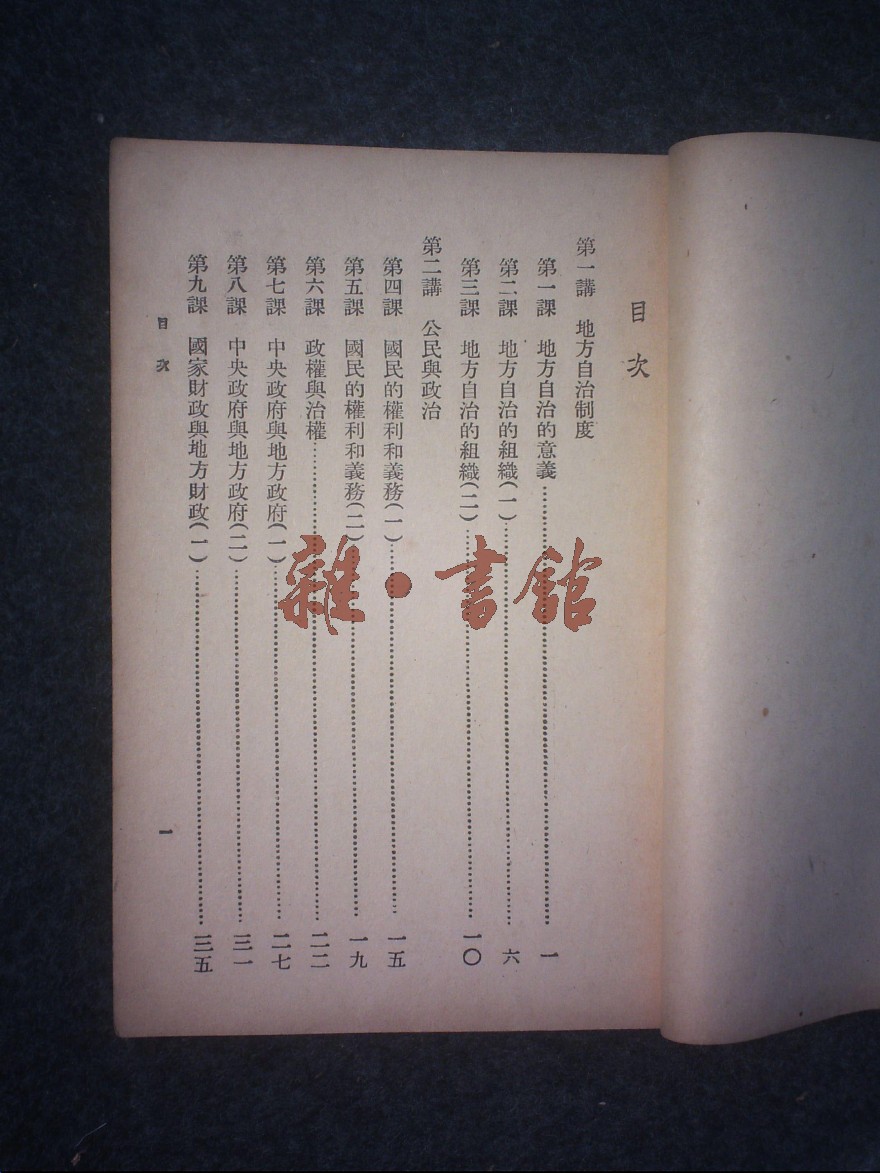 目次
第一講　地方自治制度
第一課　地方自治的意義……………………一
第二課　地方自治的組織(一)……………………六
第三課　地方自治的組織(二)……………………一〇
第二講　公民與政治
第四課　國民的權利和義務(一)……………………一五
第五課　國民的權利和義務(二)……………………一九
第六課　政權與治權……………………二二
第七課　中央政府與地方政府(一)……………………二七
第八課　中央政府與地方政府(二)……………………三一
第九課　國家財政與地方財政(一)……………………三五
目次　一
雜·書館